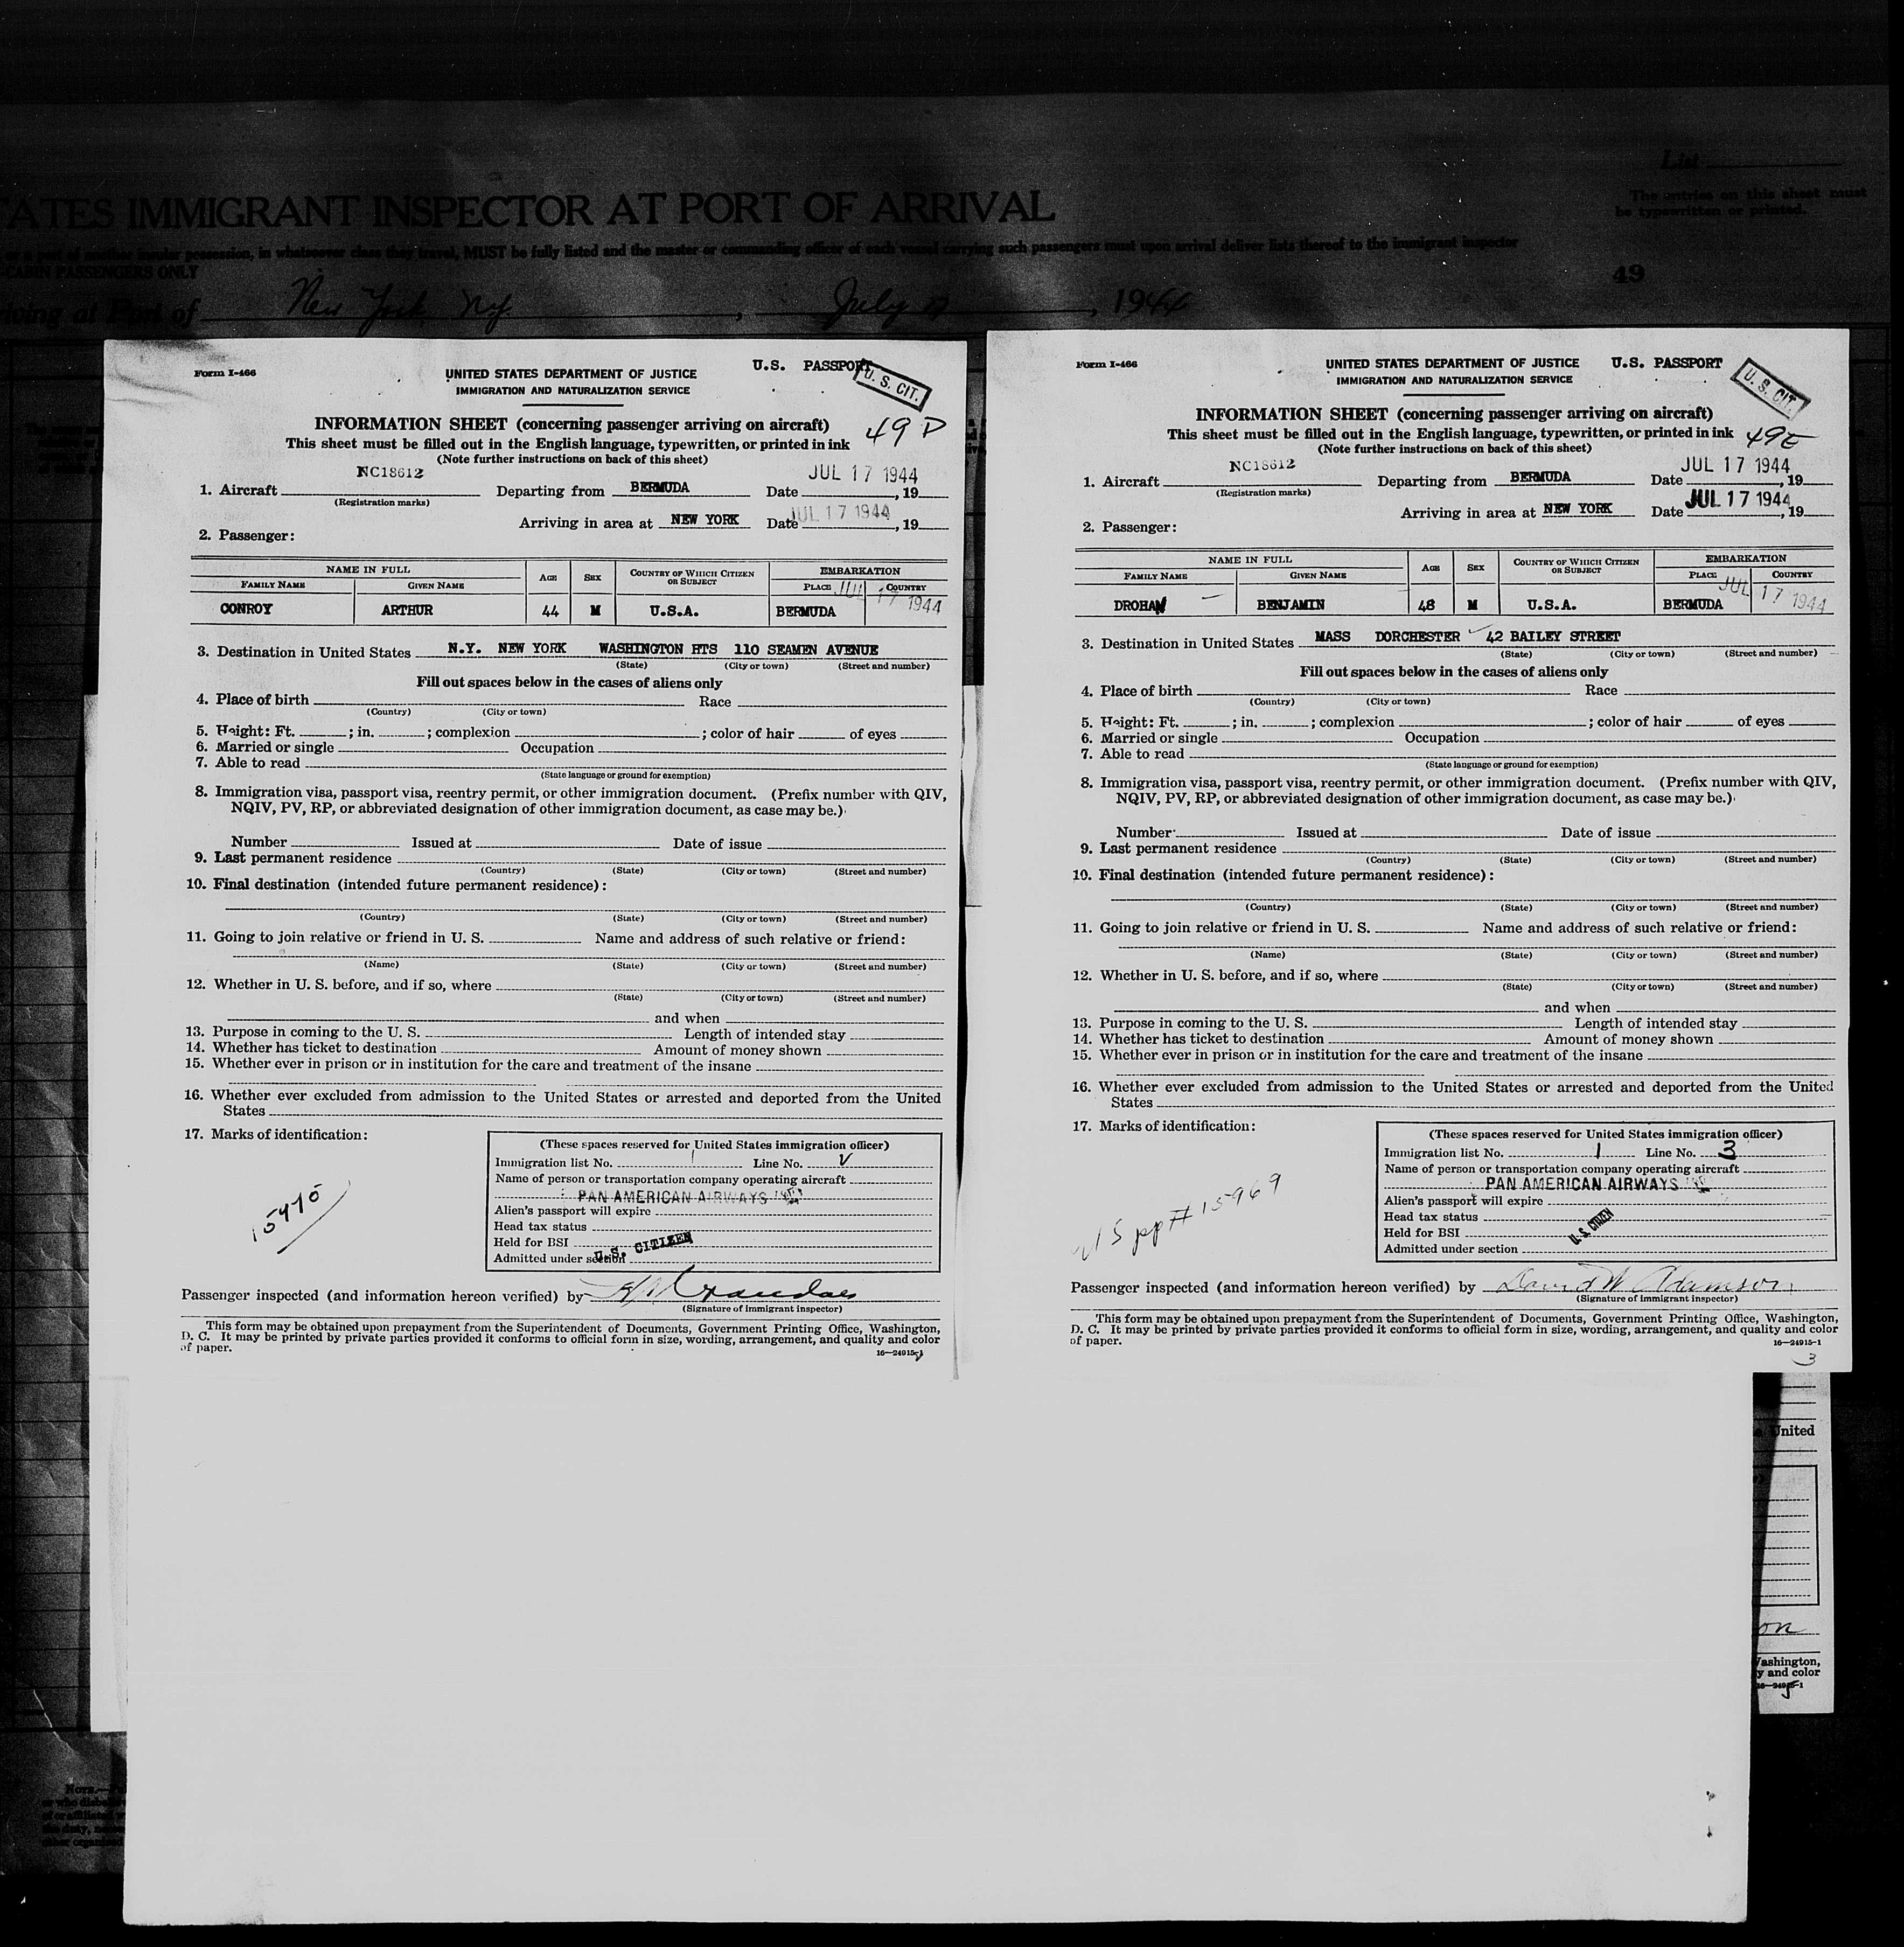 List
The entries on this sheet must
be typewritten or printed.
ATES IMMIGRANT INSPECTOR AT PORT OF ARRIVAL
or a part of another insular possession, in whatsoever class they travel, MUST be fully listed and the master or commanding officer of each vessel carrying such passengers must upon arrival deliver lists thereof to the immigrant inspector
CABIN PASSENGERS ONLY
49
iving at Port of New York, N.Y., July 17, 1944
Form I-466
UNITED STATES DEPARTMENT OF JUSTICE
U.S. PASSPORT
U. S. CIT.
IMMIGRATION AND NATURALIZATION SERVICE
INFORMATION SHEET (concerning passenger arriving on aircraft)
49 D
This sheet must be filled out in the English language, typewritten, or printed in ink
(Note further instructions on back of this sheet)
1. Aircraft NC18612 Departing from BERMUDA Date JUL 17 1944, 19
(Registration marks)
Arriving in area at NEW YORK Date JUL 17 1944, 19
2. Passenger:
NAME IN FULL
AGE SEX COUNTRY OF WHICH CITIZEN OR SUBJECT EMBARKATION
FAMILY NAME GIVEN NAME PLACE COUNTRY
JUL 17 1944
CONROY ARTHUR 44 M U.S.A. BERMUDA
3. Destination in United States N.Y. NEW YORK WASHINGTON HTS 110 SEAMEN AVENUE
(State) (City or town) (Street and number)
Fill out spaces below in the cases of aliens only
4. Place of birth Race
(Country) (City or town)
5. Height: Ft. ; in. ; complexion ; color of hair of eyes
6. Married or single Occupation
7. Able to read
(State language or ground for exemption)
8. Immigration visa, passport visa, reentry permit, or other immigration document. (Prefix number with QIV,
NQIV, PV, RP, or abbreviated designation of other immigration document, as case may be.)
Number Issued at Date of issue
9. Last permanent residence
(Country) (State) (City or town) (Street and number)
10. Final destination (intended future permanent residence):
(Country) (State) (City or town) (Street and number)
11. Going to join relative or friend in U. S. Name and address of such relative or friend:
(Name) (State) (City or town) (Street and number)
12. Whether in U. S. before, and if so, where
(State) (City or town) (Street and number)
and when
13. Purpose in coming to the U. S. Length of intended stay
14. Whether has ticket to destination Amount of money shown
15. Whether ever in prison or in institution for the care and treatment of the insane
16. Whether ever excluded from admission to the United States or arrested and deported from the United
States
17. Marks of identification:
(These spaces reserved for United States immigration officer)
Immigration list No. 1 Line No. V
Name of person or transportation company operating aircraft
PAN AMERICAN AIRWAYS
Alien's passport will expire
Head tax status
Held for BSI
Admitted under section U.S. CITIZEN
15475
Passenger inspected (and information hereon verified) by
(Signature of immigrant inspector)
This form may be obtained upon prepayment from the Superintendent of Documents, Government Printing Office, Washington,
D. C. It may be printed by private parties provided it conforms to official form in size, wording, arrangement, and quality and color
of paper.
16—24915-1
Form I-466
UNITED STATES DEPARTMENT OF JUSTICE
U.S. PASSPORT
U. S. CIT.
IMMIGRATION AND NATURALIZATION SERVICE
INFORMATION SHEET (concerning passenger arriving on aircraft)
This sheet must be filled out in the English language, typewritten, or printed in ink
49E
(Note further instructions on back of this sheet)
1. Aircraft NC18612 Departing from BERMUDA Date JUL 17 1944, 19
(Registration marks)
Arriving in area at NEW YORK Date JUL 17 1944, 19
2. Passenger:
NAME IN FULL
AGE SEX COUNTRY OF WHICH CITIZEN OR SUBJECT EMBARKATION
FAMILY NAME GIVEN NAME PLACE COUNTRY
JUL 17 1944
DROHAN BENJAMIN 48 M U.S.A. BERMUDA
3. Destination in United States MASS DORCHESTER 42 BAILEY STREET
(State) (City or town) (Street and number)
Fill out spaces below in the cases of aliens only
4. Place of birth Race
(Country) (City or town)
5. Height: Ft. ; in. ; complexion ; color of hair of eyes
6. Married or single Occupation
7. Able to read
(State language or ground for exemption)
8. Immigration visa, passport visa, reentry permit, or other immigration document. (Prefix number with QIV,
NQIV, PV, RP, or abbreviated designation of other immigration document, as case may be.)
Number Issued at Date of issue
9. Last permanent residence
(Country) (State) (City or town) (Street and number)
10. Final destination (intended future permanent residence):
(Country) (State) (City or town) (Street and number)
11. Going to join relative or friend in U. S. Name and address of such relative or friend:
(Name) (State) (City or town) (Street and number)
12. Whether in U. S. before, and if so, where
(State) (City or town) (Street and number)
and when
13. Purpose in coming to the U. S. Length of intended stay
14. Whether has ticket to destination Amount of money shown
15. Whether ever in prison or in institution for the care and treatment of the insane
16. Whether ever excluded from admission to the United States or arrested and deported from the United
States
17. Marks of identification:
(These spaces reserved for United States immigration officer)
Immigration list No. 1 Line No. 3
Name of person or transportation company operating aircraft
PAN AMERICAN AIRWAYS
Alien's passport will expire
Head tax status
Held for BSI U.S. CITIZEN
Admitted under section
pp # 15969
Passenger inspected (and information hereon verified) by David W Adamson
(Signature of immigrant inspector)
This form may be obtained upon prepayment from the Superintendent of Documents, Government Printing Office, Washington,
D. C. It may be printed by private parties provided it conforms to official form in size, wording, arrangement, and quality and color
of paper.
16—24915-1
3
United
on
Washington,
y and color